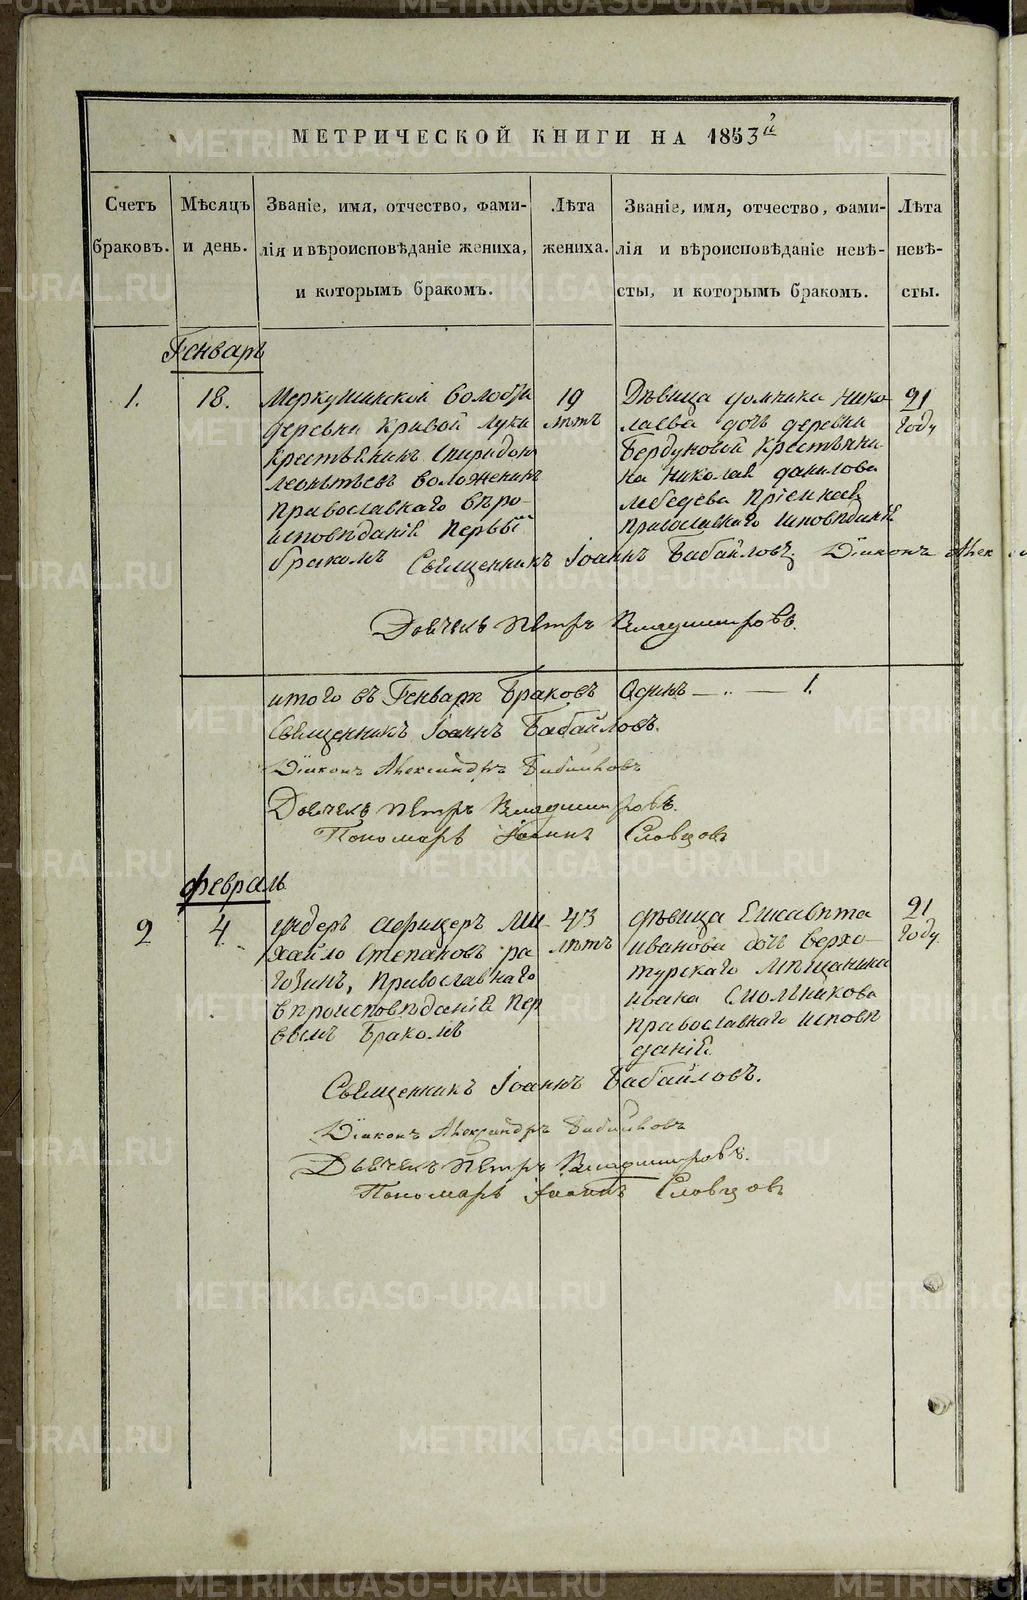 МЕТРИЧЕСКОЙ КНИГИ НА 1853 й
Счетъ браковъ.
Мѣсяцъ и день.
Званіе, имя, отчество, фами-
лія и вѣроисповѣданіе жениха,
и которымъ бракомъ.
Лѣта
жениха.
Званіе, имя, отчество, фами-
лія и вѣроисповѣданіе невѣ-
сты, и которымъ бракомъ.
Лѣта
невѣ-
сты.
Генварь
1.
18.
Меркушинской волости
деревни Кривой Луки
крестьянинъ Спиридон
Леонтьевъ Воложенинъ
православнаго вѣро-
исповѣданія первый
бракомъ
19
лѣтъ
Дѣвица домника Нико
лаева дочь деревни
Бердуновой крестьяни
на Николая данилова
лебедева приемная
православнаго исповѣдания
21
году
Священникъ Іоаннъ Бабайловъ Діаконъ Алек
Дьячекъ Петръ Владимировъ.
итого въ Генварѣ Браковъ Одинъ — „ — 1.
Священникъ Іоаннъ Бабайловъ.
Діаконъ Александръ Бабайловъ
Дьячекъ Петръ Владимировъ.
Пономарь Іоаннъ Словцовъ
февраль
2
4
ундеръ афицеръ Ми
хайло Степановъ ра
гозинъ, православнаго
вѣроисповѣданія пер
вымъ бракомъ
43
лѣтъ
дѣвица Елисавѣта
иванова дочь верхо-
турскаго мѣщанина
ивана Смольникова
православнаго исповѣ
данія
21
году
Священникъ Іоаннъ Бабайловъ.
Діаконъ Александръ Бабайловъ
Дьячекъ Петръ Владимировъ.
Пономарь Іоаннъ Словцовъ
METRIKI.GASO-URAL.RU